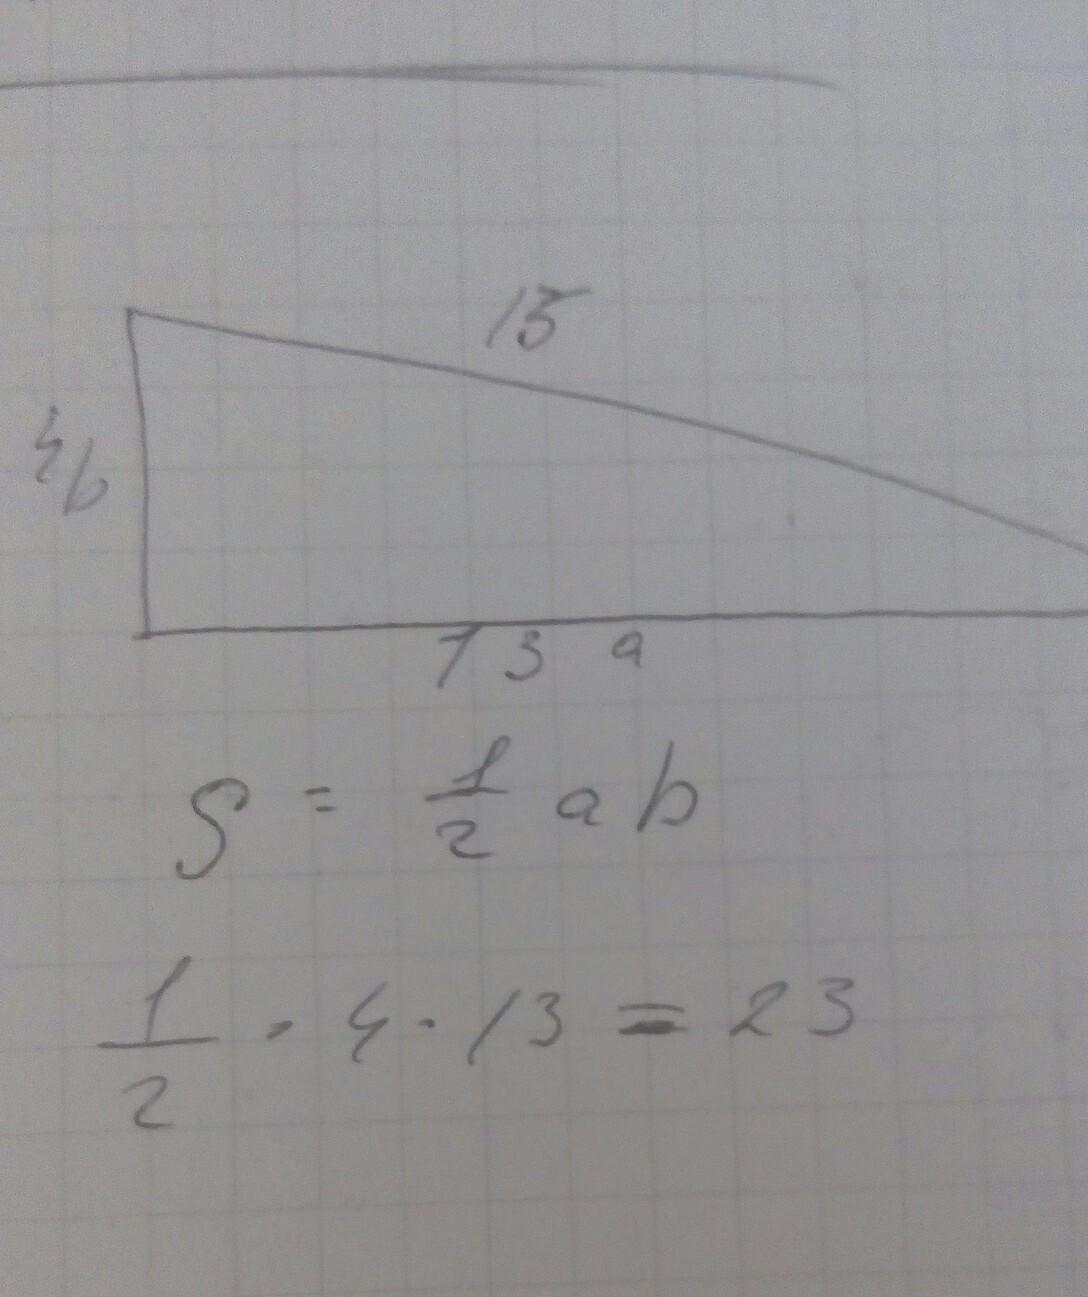 15
4 b
13 a
S = 1/2 ab
1/2 · 4 · 13 = 23